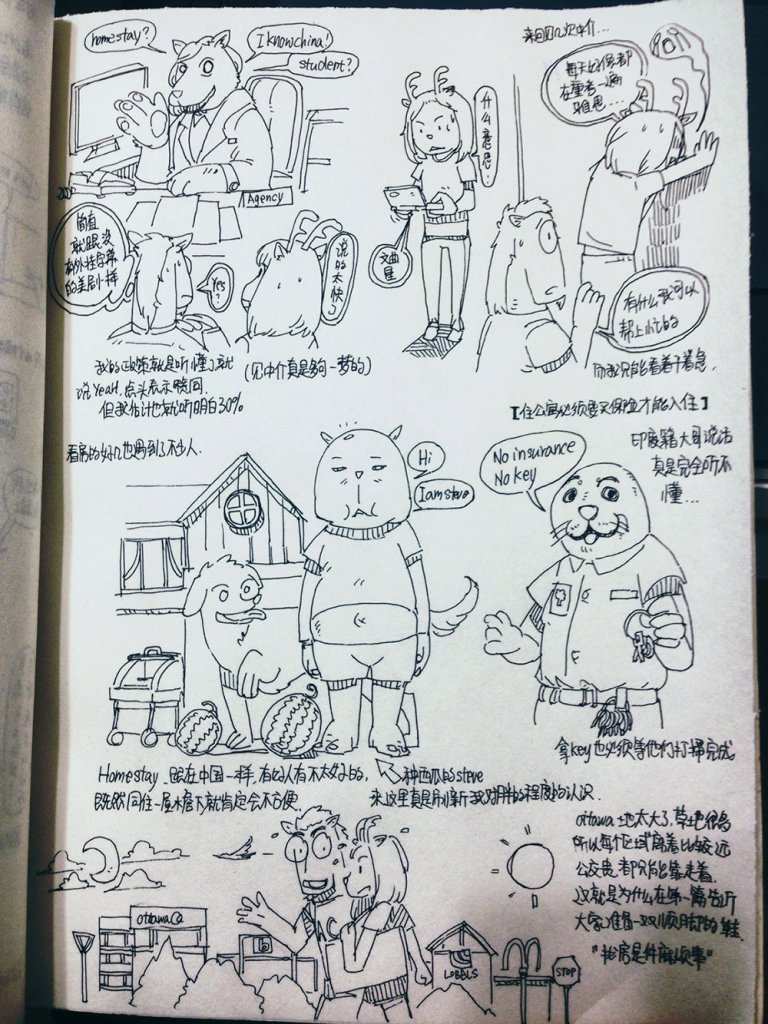 homestay?
I know china!
student?
Agency
简直
就跟没
有外挂字幕
的美剧一样
Yes?
说的
太快了
我的政策就是听懂了就
说Yeah,点头表示赞同.
但我估计也就听明白30%
(见中介真是够一梦的)
什么意思?
文曲
星
来回见几次中介...
每天的像都
在重考一遍
雅思...
有什么我可以
帮上忙的
而我只能看着干着急.
【住公寓必须要买保险才能入住】
看房的好几也遇到了不少人.
Hi
I am steve
No insurance
No key
印度籍大哥说话
真是完全听不
懂...
拿key也必须等他们打扫完成
Homestay 跟在中国一样,有好人有不太好的,
既然同住一屋檐下就肯定会不方便.
种西瓜的steve
来这里真是刷新我对胖的程度的认识.
ottawa 地太大了,草地很多
所以每个区域离着比较远
公交贵,都只能靠走着.
这就是为什么在第一篇告诉
大家准备一双顺脚的鞋
"找房是件麻烦事"
ottawa Ca
AC
b
LOBBLS
STOP